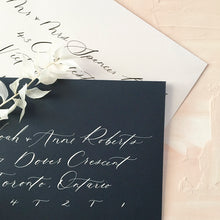 Mr & Mrs Spencer
45 C
Noah & Anne Roberto
Dover Crescent
Toronto, Ontario
4 T 2 T 1